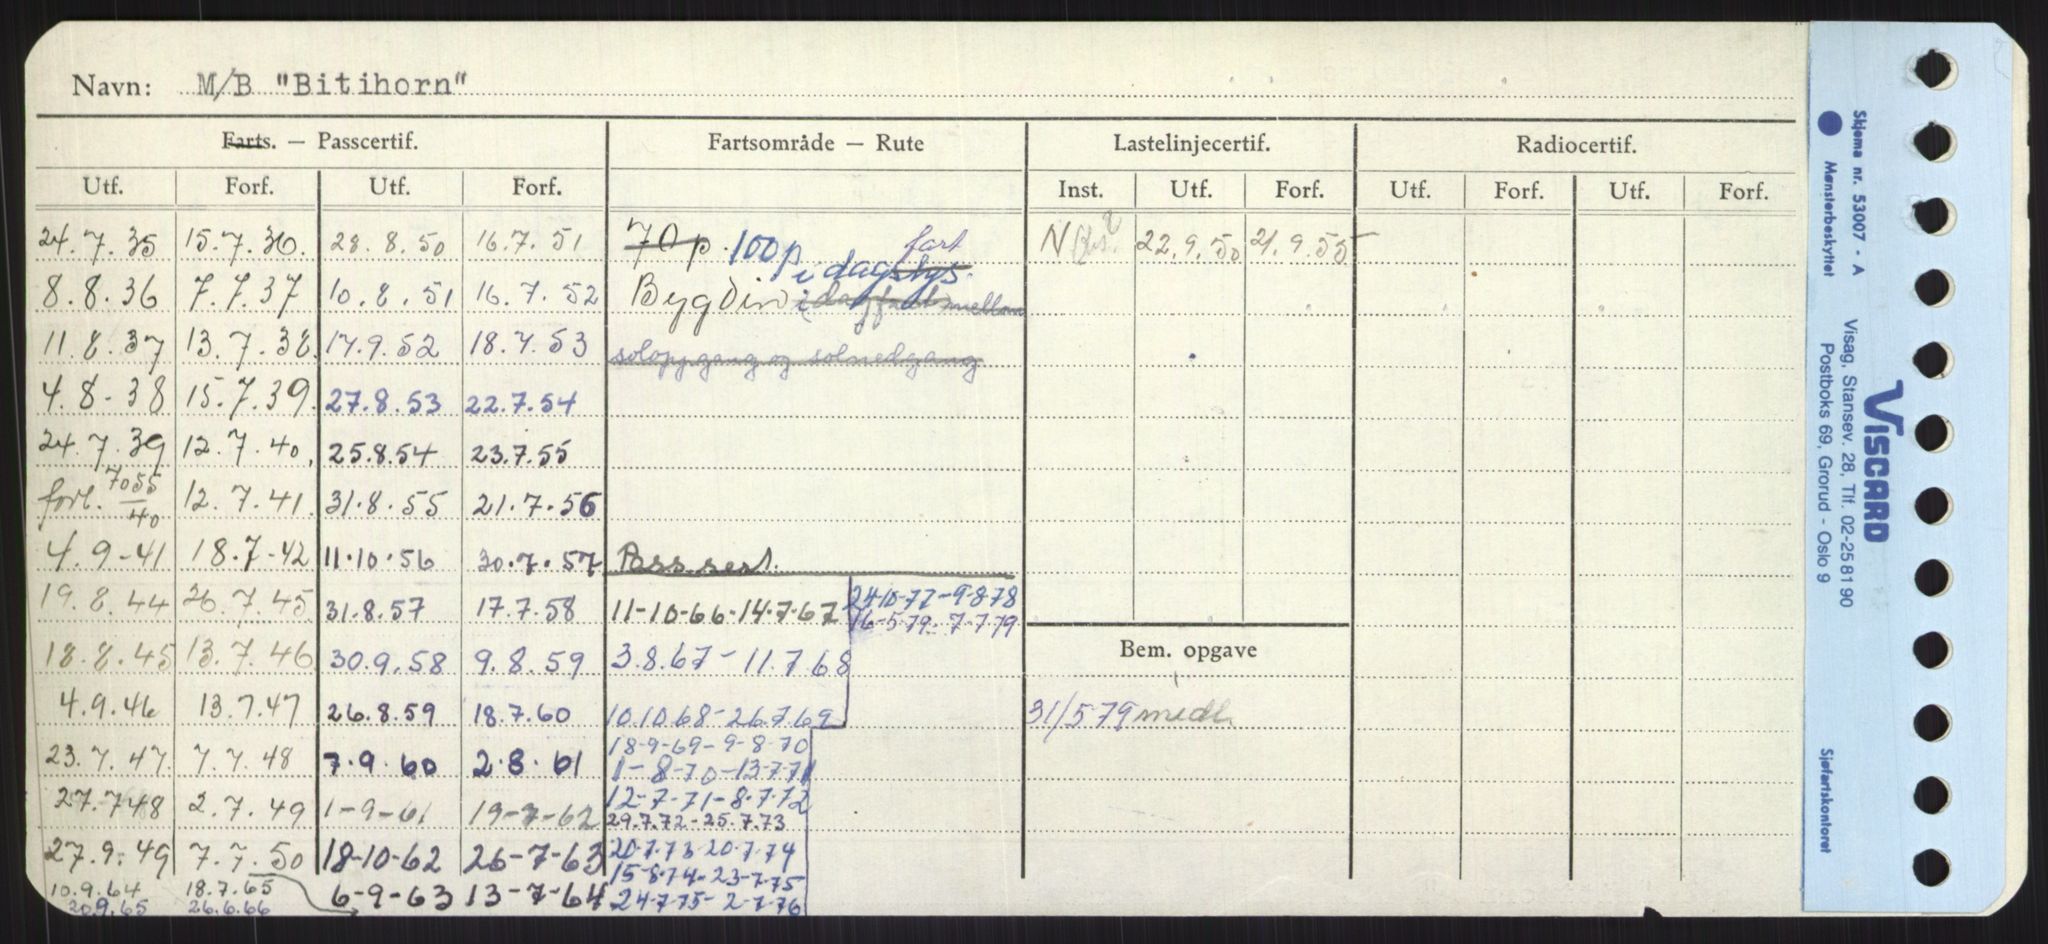 Navn: M/B "Bitihorn"
Farts. — Passcertif. Fartsområde — Rute Lastelinjecertif. Radiocertif.
Utf. Forf. Utf. Forf. Inst. Utf. Forf. Utf. Forf. Utf. Forf.
24.7.35 15.7.36. 28.8.50 16.7.51 70 p. 100 p i dagslys. fart N 22.9.50 21.9.55
8.8.36 7.7.37 10.8.51 16.7.52 Bygdin i dagfart mellom
11.8.37 13.7.38. 17.9.52 18.7.53 soloppgang og solnedgang
4.8-38 15.7.39. 27.8.53 22.7.54
24.7.39 12.7.40. 25.8.54 23.7.55
forl. 7055/40 12.7.41. 31.8.55 21.7.56
4.9-41 18.7-42 11.10.56 30.7.57 Pass.sert.
19.8.44 26.7.45 31.8.57 17.7.58 11-10-66-14.7.67 24-10-77-9-8-78
16-5-79-7-7-79
18.8.45 13.7.46 30.9.58 9.8.59 3.8.67-11.7.68
4.9.46 13.7.47 26.8.59 18.7.60 10.10.68-26.7.69
23.7.47. 7.7.48 7.9.60 2.8.61 18-9-69-9-8-70
1-8-70-13-7-71
27.748 2.7.49 1-9-61 19-7-62 12-7-71-8.7.72
29.7.72-25.7.73
27.9.49 7.7.50 18-10-62 26-7-63 20.7.73 20.7.74
15-8.74-23-7-75
10.9.64 18.7.65 6-9-63 13-7-64 24-7-75-2-7-76
20.9.65 26.6.66
Bem. opgave
31/5 79 medl.
Skjema nr. 53007 - A
Mønsterbeskyttet
VISCARD
Visag, Stansev. 28, Tlf. 02-25 81 90
Postboks 69, Grorud - Oslo 9
Sjøfartskontoret